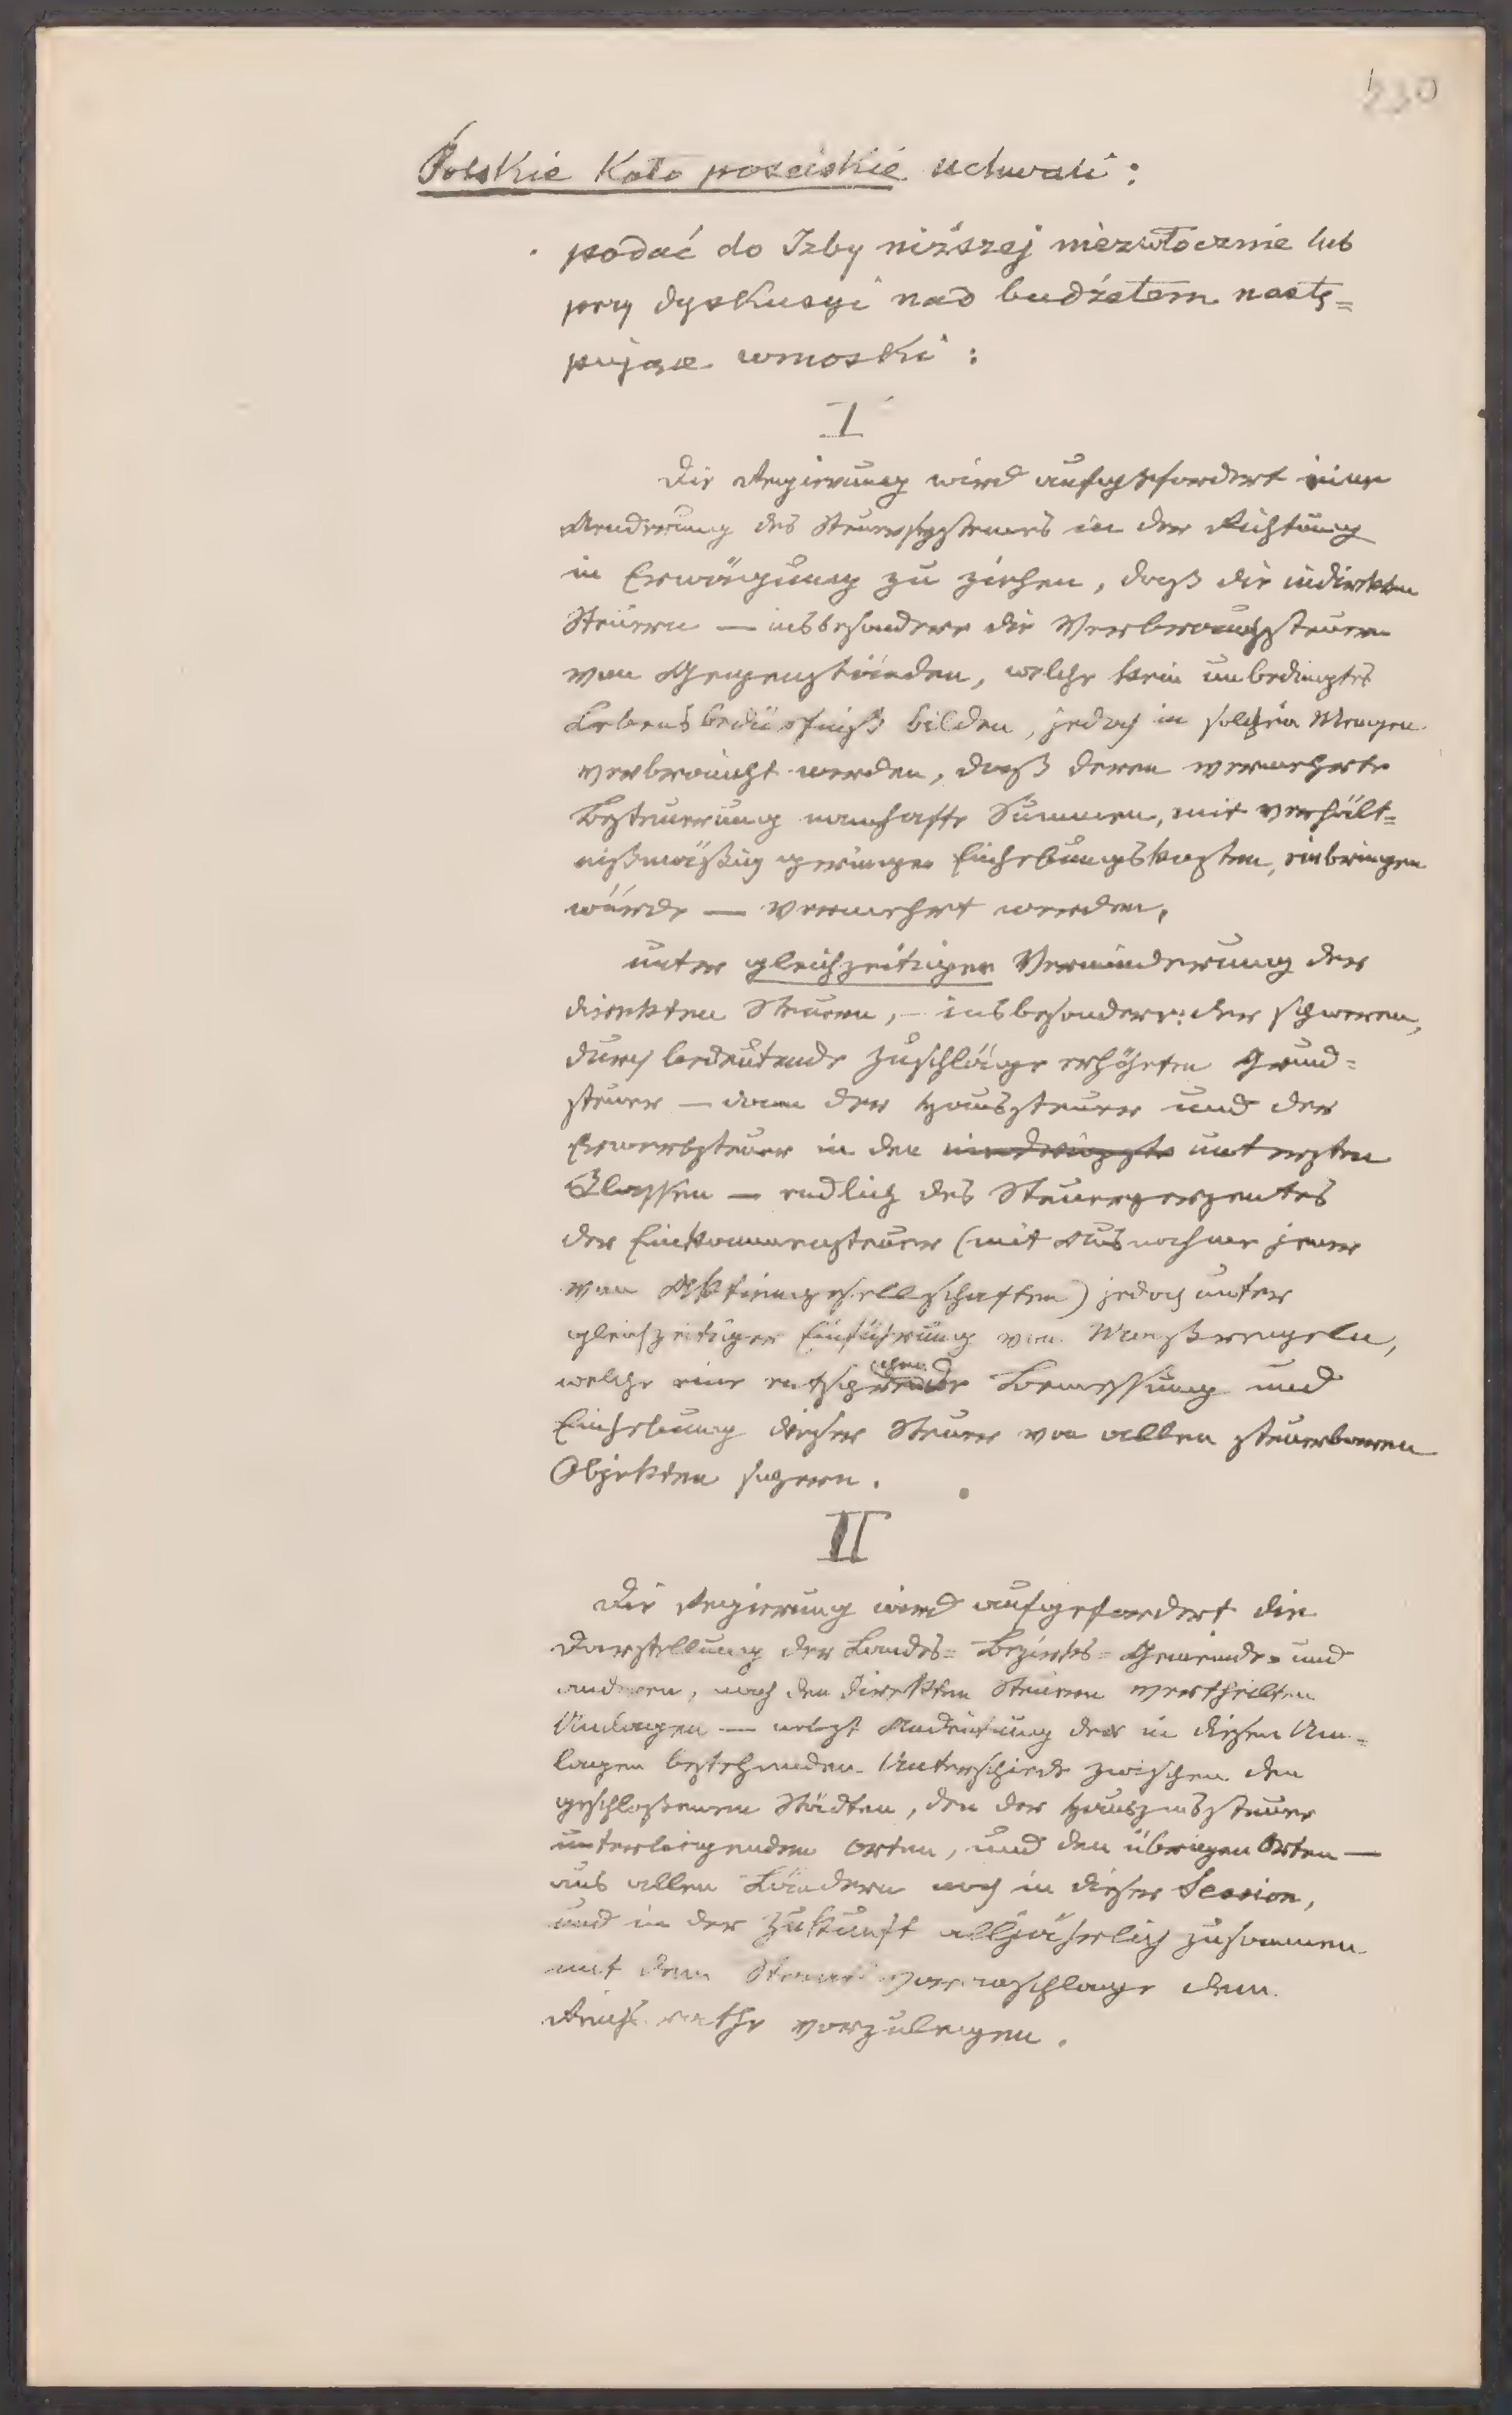 530
Polskie Koło poselskie uchwali:
podać do Izby niższej niezwłocznie lub
przy dyskusyi nad budżetem nastę=
pujące wnioski:
I
Die Regierung wird aufgefordert eine
Aenderung des Steuersystemes in der Richtung
in Erwägung zu ziehen, daß die indirekten
Steuern — insbesondere die Verbrauchssteuern
von Gegenständen, welche kein unbedingtes
Lebensbedürfniß bilden, jedoch in solchen Mengen
verbraucht werden, daß deren vermehrte
Besteuerung namhafte Summen, mit verhält=
nißmäßig geringen Einhebungskosten, einbringen
würde — vermehrt werden,
unter gleichzeitiger Verminderung der
direkten Steuern, — insbesondere: der schweren,
durch bedeutende Zuschläge erhöhten Grund=
steuer — dann der Haussteuer und der
Erwerbsteuer in den untersten
Classen — endlich des Steuerperzentes
der Einkommensteuer (mit Ausnahme jener
von Aktiengesellschaften) jedoch unter
gleichzeitiger Einführung von Maßregeln,
welche eine Bemessung und
Einhebung dieser Steuer von allen steuerbaren
Objekten sichern.
II
Die Regierung wird aufgefordert die
Darstellung der Landes= Bezirks= Gemeinde= und
anderen, nach den direkten Steuern vertheilten
Umlagen — nebst Andeutung der in diesen Um=
lagen bestehenden Unterschiede zwischen den
geschloßenen Städten, den der Hauszinssteuer
unterliegenden Orten, und den übrigen Orten —
aus allen Ländern noch in dieser Session,
und in der Zukunft alljährlich zusammen
mit dem Staatsvoranschlage dem
Reichsrathe vorzulegen.